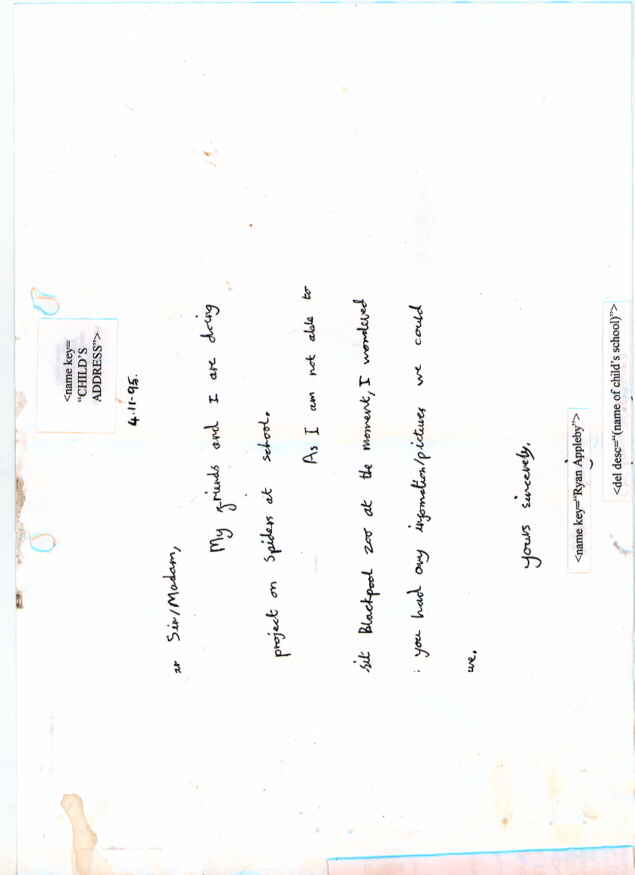 <name key=
"CHILD'S
ADDRESS">
4.11.95.
Sir/Madam,
My friends and I are doing
project on Spiders at school.
As I am not able to
sit Blackpool zoo at the moment, I wondered
you had any infomation/pictures we could
ve.
yours sincerely,
<name key="Ryan Appleby">
<del desc="(name of child's school)">